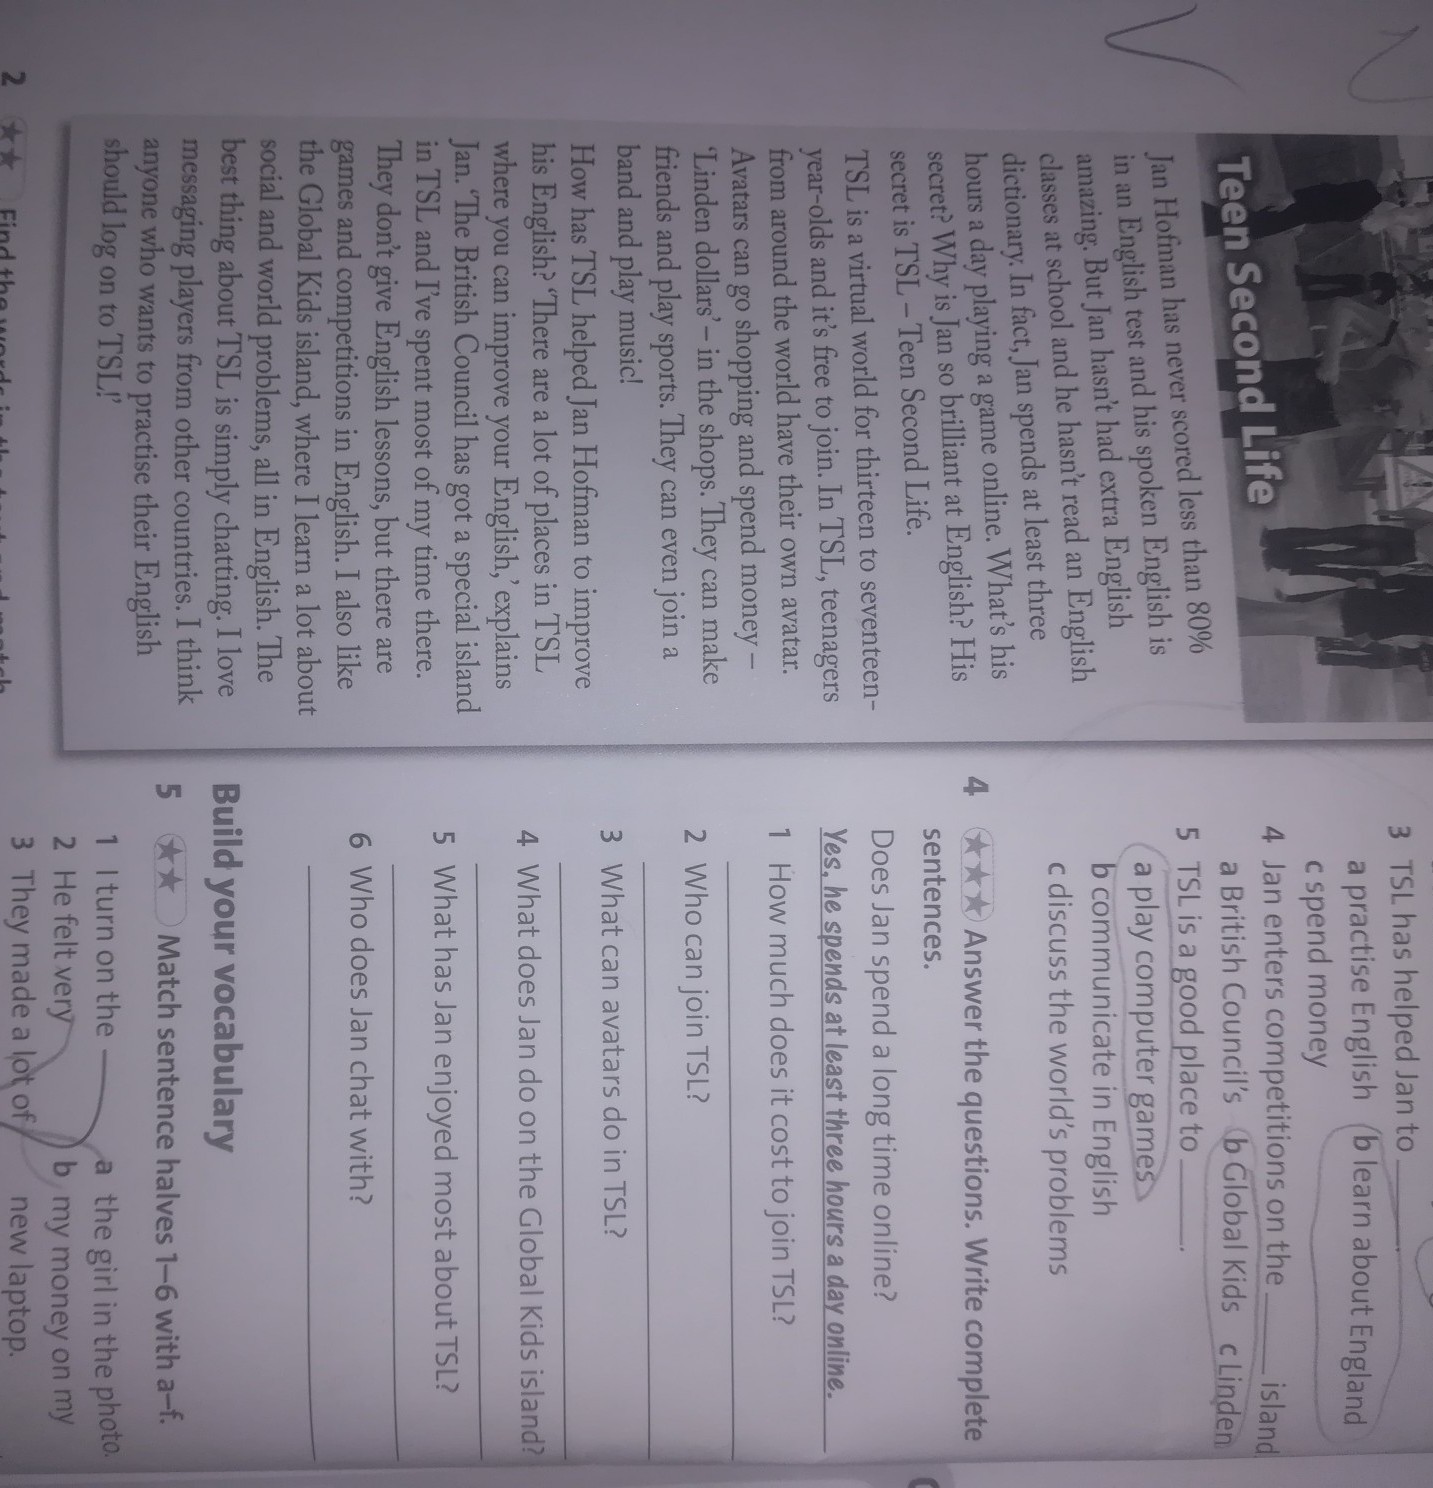 Teen Second Life
Jan Hofman has never scored less than 80%
in an English test and his spoken English is
amazing. But Jan hasn't had extra English
classes at school and he hasn't read an English
dictionary. In fact, Jan spends at least three
hours a day playing a game online. What's his
secret? Why is Jan so brilliant at English? His
secret is TSL – Teen Second Life.
TSL is a virtual world for thirteen to seventeen-
year-olds and it's free to join. In TSL, teenagers
from around the world have their own avatar.
Avatars can go shopping and spend money –
'Linden dollars' – in the shops. They can make
friends and play sports. They can even join a
band and play music!
How has TSL helped Jan Hofman to improve
his English? 'There are a lot of places in TSL
where you can improve your English,' explains
Jan. 'The British Council has got a special island
in TSL and I've spent most of my time there.
They don't give English lessons, but there are
games and competitions in English. I also like
the Global Kids island, where I learn a lot about
social and world problems, all in English. The
best thing about TSL is simply chatting. I love
messaging players from other countries. I think
anyone who wants to practise their English
should log on to TSL!'
2 ★★ Find the words in the text and match
3 TSL has helped Jan to ______.
a practise English b learn about England
c spend money
4 Jan enters competitions on the ______ island
a British Council's b Global Kids c Linden
5 TSL is a good place to ______.
a play computer games
b communicate in English
c discuss the world's problems
4 ★★★ Answer the questions. Write complete
sentences.
Does Jan spend a long time online?
Yes, he spends at least three hours a day online.
1 How much does it cost to join TSL?
2 Who can join TSL?
3 What can avatars do in TSL?
4 What does Jan do on the Global Kids island?
5 What has Jan enjoyed most about TSL?
6 Who does Jan chat with?
Build your vocabulary
5 ★★ Match sentence halves 1–6 with a–f.
1 I turn on the a the girl in the photo.
2 He felt very b my money on my
3 They made a lot of new laptop.